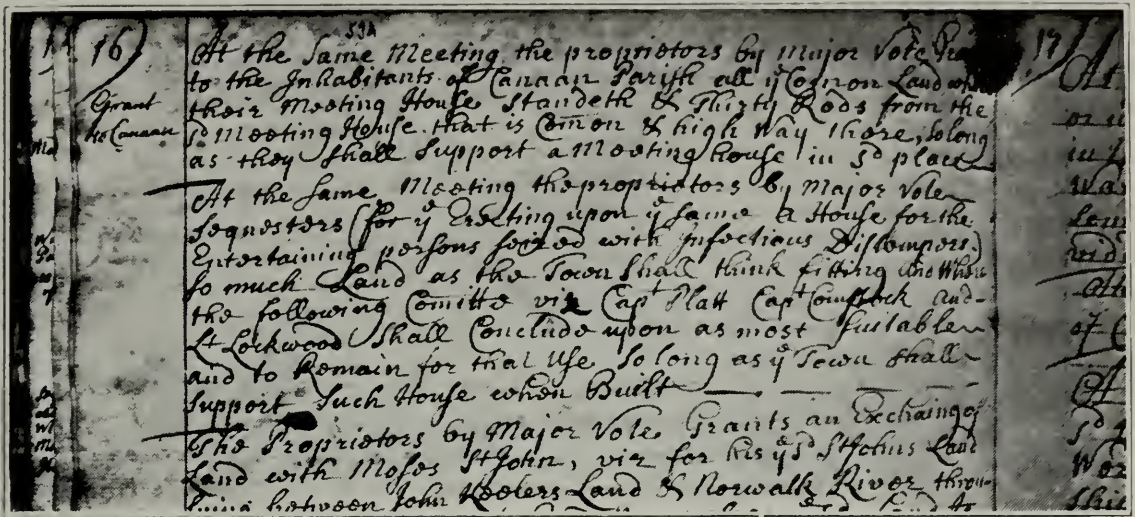 16)
59A
Grant
to Canaan
At the Same Meeting the proprietors by Major Vote
to the Inhabitants of Canaan Parish all ye Comon Land
their Meeting House Standeth & Thirty Rods from the
sd Meeting House that is Comon & high way there, so long
as they Shall Support a Meeting house in sd place
At the Same Meeting the proprietors by Major Vote
Sequesters (for ye Erecting upon ye Same a House for the
Entertaining persons seized with Infectious Distempers)
so much Land as the Town Shall think fitting and When
the following Comitte viz Capt Platt Capt Comstock and
Lt Lockwood Shall Conclude upon as most Suitable
and to Remain for that Use so long as ye Town Shall
Support Such House when Built
The Proprietors by Major Vote Grants an Exchaing of
Land with Moses St John, viz for his ye sd St Johns Land
Lying between John Keelers Land & Norwalk River
17)
At